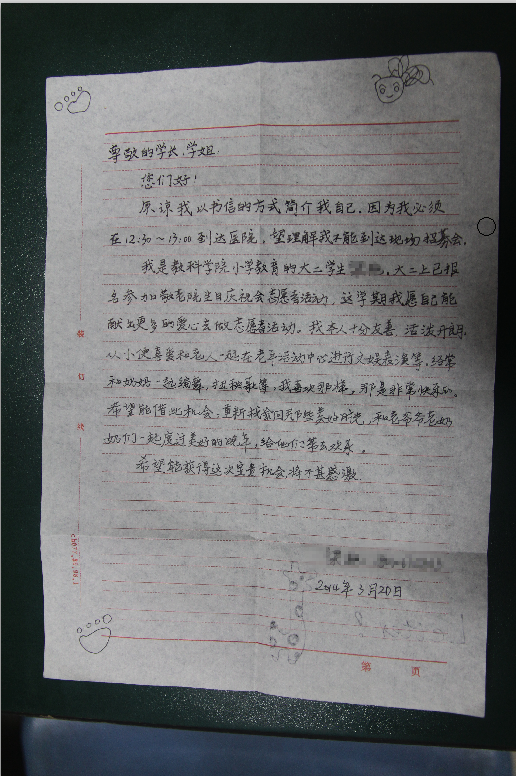 尊敬的学长、学姐:
您们好!
原谅我以书信的方式简介我自己,因为我必须
在12:30~13:00到达医院,望理解我不能到达现场招募会。
我是教科学院小学教育的大二学生,大二上已报
名参加敬老院生日庆祝会志愿者活动,这学期我愿自己能
献出更多的爱心去做志愿者活动。我本人十分友善、活泼开朗,
从小便喜爱和老人一起在老年活动中心进行文娱表演等,经常
和奶奶一起编舞,扭秧歌等,我喜欢那样,那是非常快乐的。
希望能借此机会,重新找会回那些美好时光,和老爷爷老奶
奶们一起度过美好的晚年,给他们带去欢乐。
希望能获得这次宝贵机会将不甚感激
2014年3月20日
装
订
线
第 页